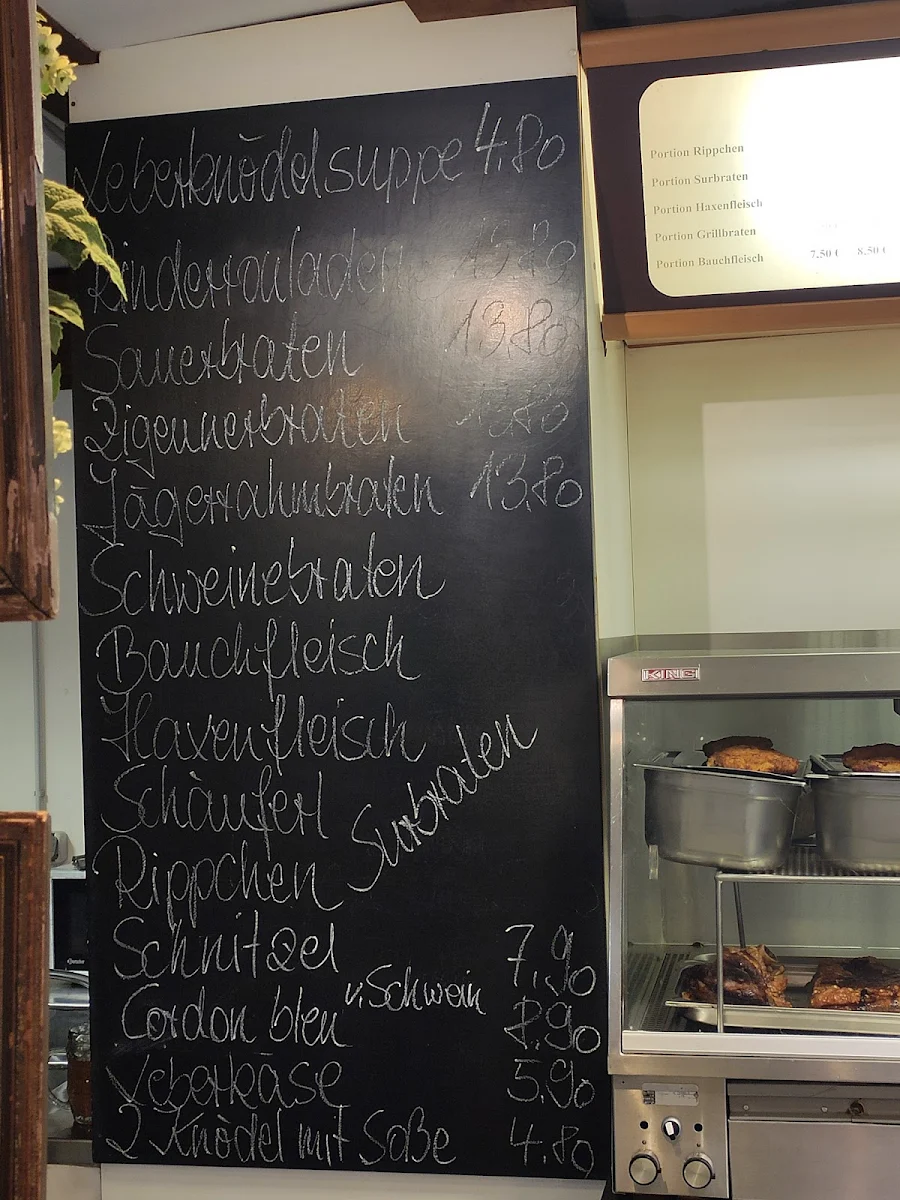 Leberknödelsuppe 4.80
Rinderrouladen
Sauerbraten 13.80
Zigeunerbraten
Jägerrahmbraten 13.80
Schweinebraten
Bauchfleisch
Haxenfleisch
Schäuferl
Rippchen Surbraten
Schnitzel 7.90
Cordon bleu v. Schwein
Leberkäse 5.90
2 Knödel mit Soße 4.80
Portion Rippchen
Portion Surbraten
Portion Haxenfleisch
Portion Grillbraten
Portion Bauchfleisch 7.50 € 8.50 €
KING